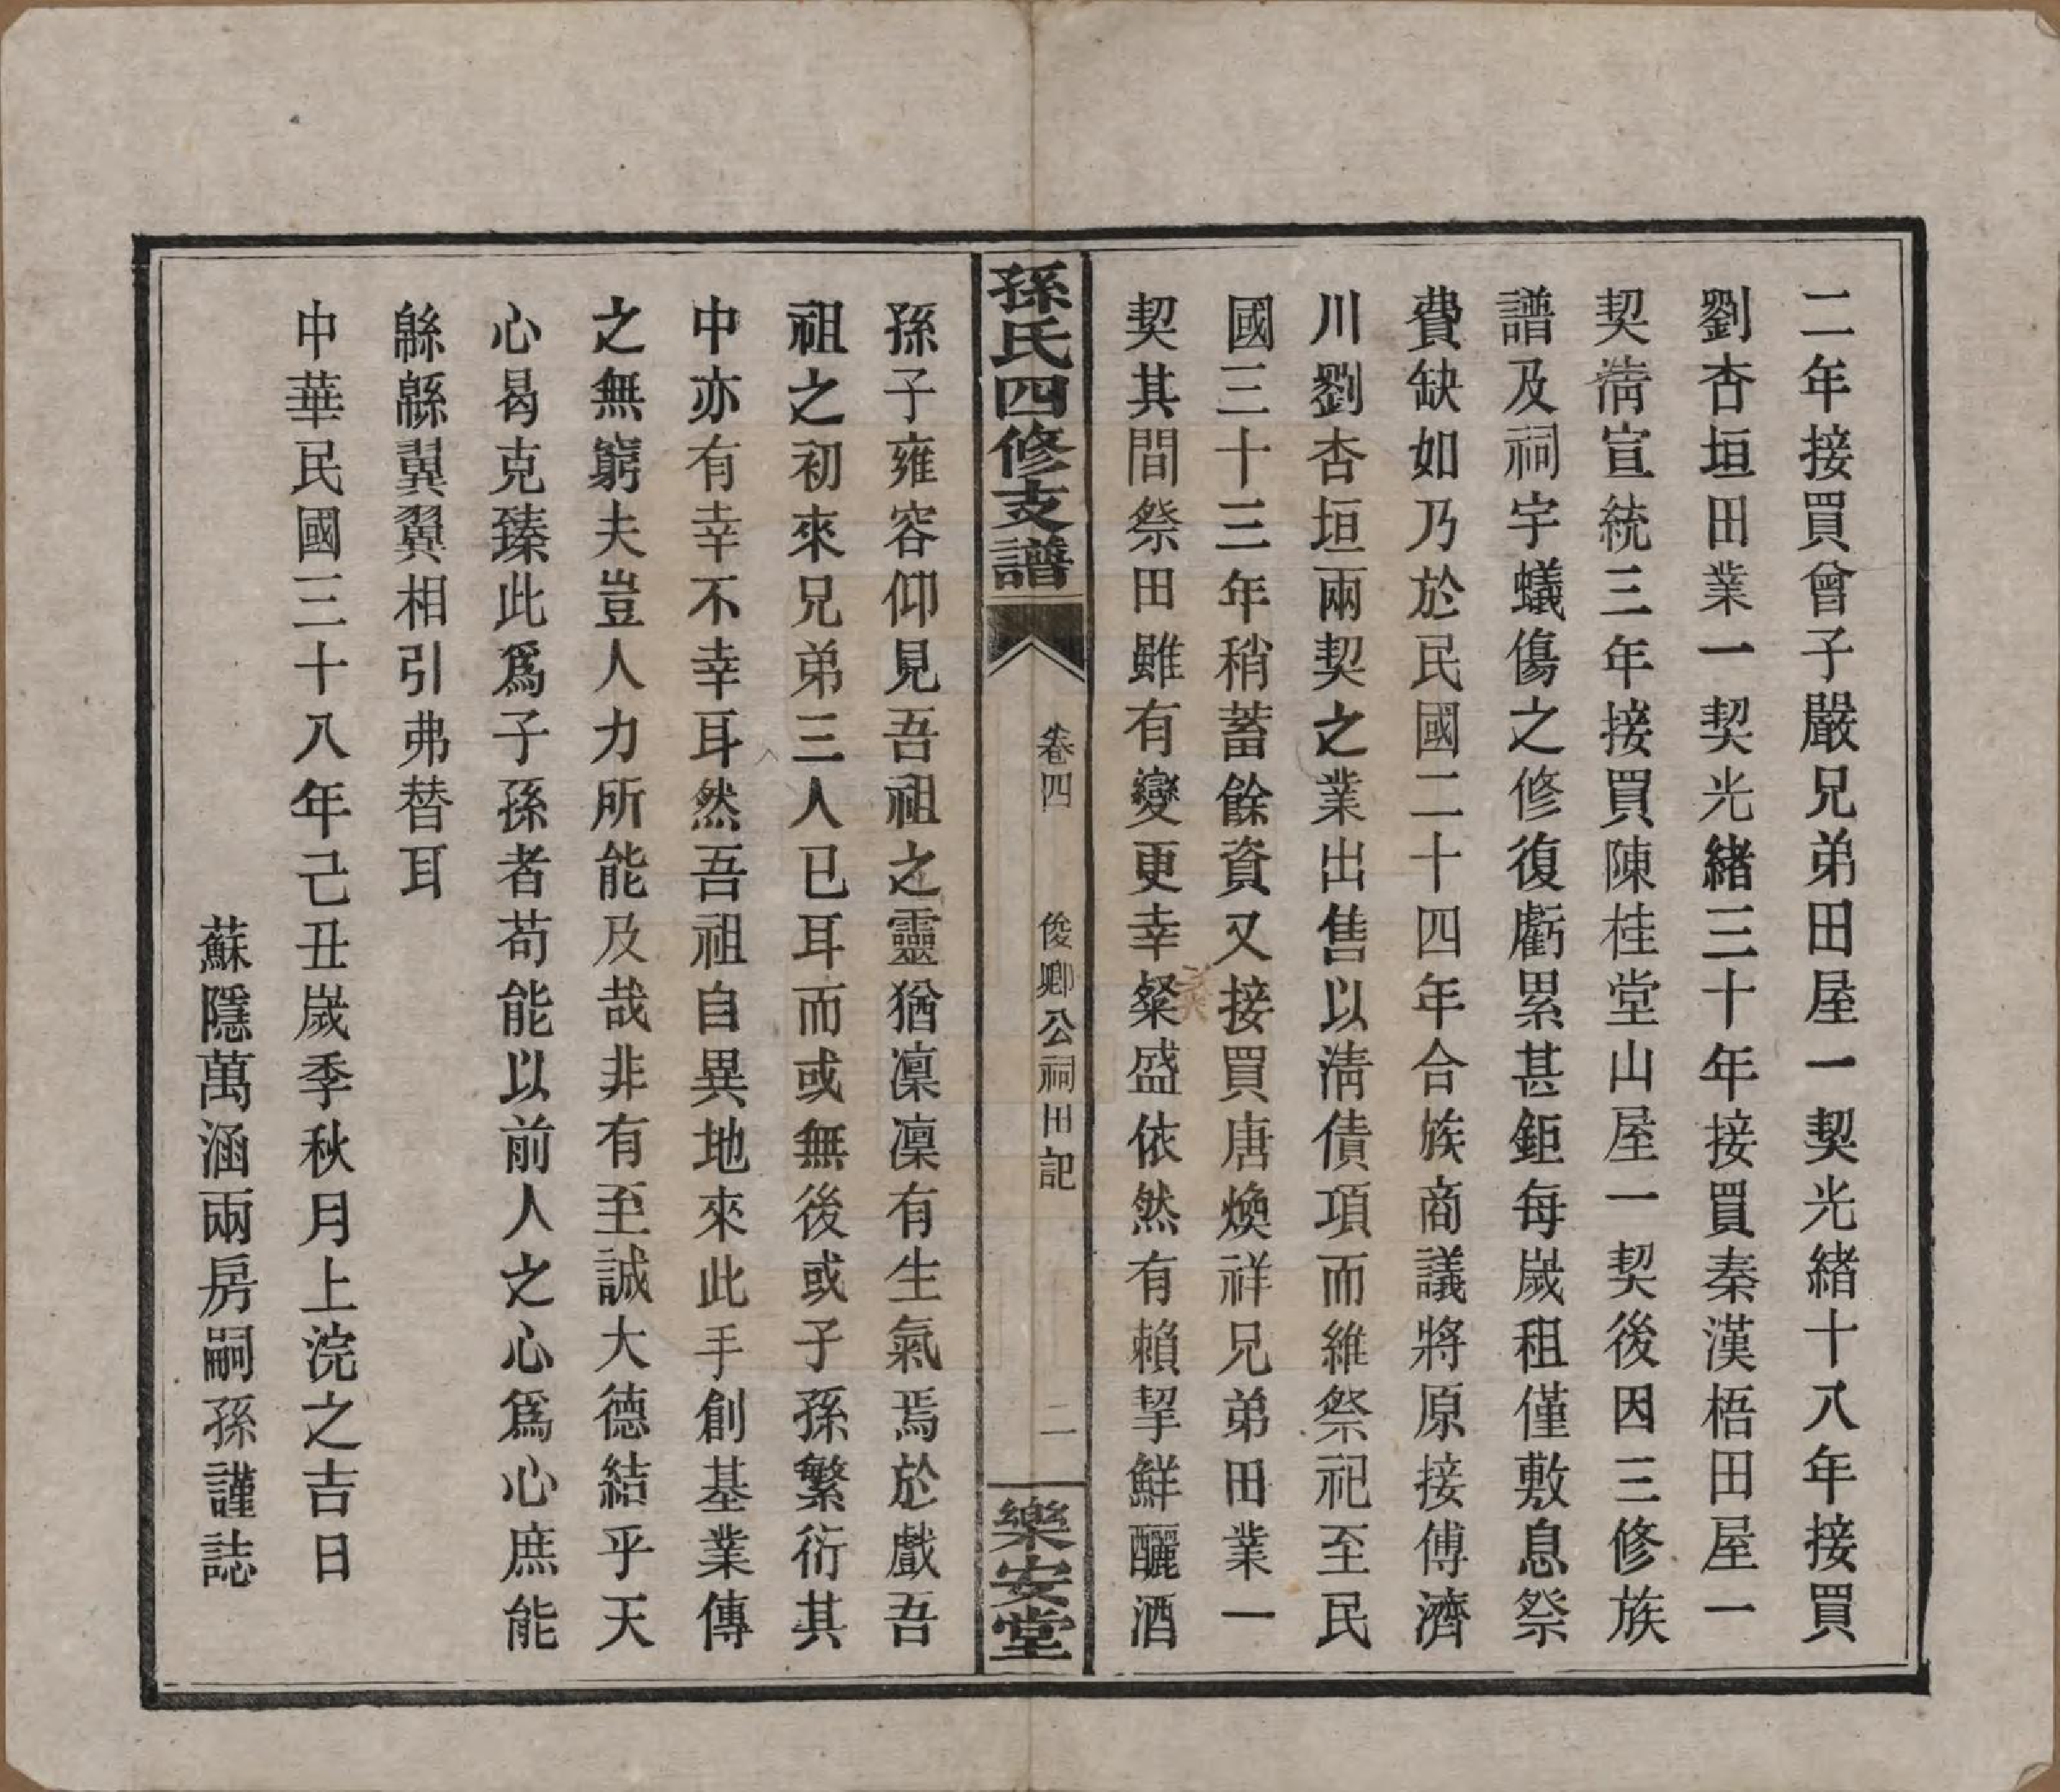 二年接買曾子嚴兄弟田屋一契光緒十八年接買
劉杏垣田業一契光緒三十年接買秦漢梧田屋一
契淸宣統三年接買陳桂堂山屋一契後因三修族
譜及祠宇蟻傷之修復虧累甚鉅每歲租僅敷息祭
費缺如乃於民國二十四年合族商議將原接傅濟
川劉杏垣兩契之業出售以淸債項而維祭祀至民
國三十三年稍蓄餘資又接買唐煥祥兄弟田業一
契其間祭田雖有變更幸粢盛依然有賴挈鮮釃酒
孫氏四修支譜
卷四
俊卿公祠田記
二
樂安堂
孫子雍容仰見吾祖之靈猶凜凜有生氣焉於戲吾
祖之初來兄弟三人已耳而或無後或子孫繁衍其
中亦有幸不幸耳然吾祖自異地來此手創基業傳
之無窮夫豈人力所能及哉非有至誠大德結乎天
心曷克臻此爲子孫者苟能以前人之心爲心庶能
緜緜翼翼相引弗替耳
中華民國三十八年己丑歲季秋月上浣之吉日
蘇隱萬涵兩房嗣孫謹誌